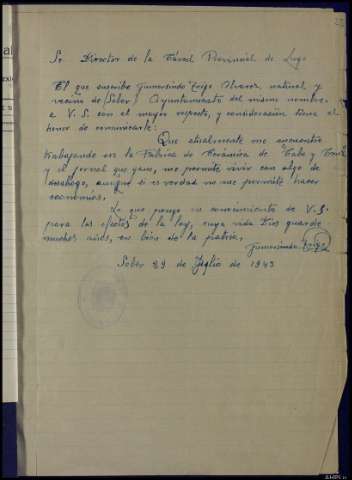 Sr. Director de la Cárcel Provincial de Lugo
El que suscribe Gumersindo Feijo Alvarez, natural y
vecino de Sober, Ayuntamiento del mismo nombre.
a V.S. con el mayor respeto, y consideración tiene el
honor de comunicarle:
Que actualmente me encuentro
trabajando en la Fabrica de Cerámica de
y el jornal que gano, me permite vivir con algo de
desahogo, aunque si es verdad no me permite hacer
economias.
Lo que pongo en conocimiento de V.S.
para los efectos de la ley, cuya vida Dios guarde
muchos años, en bien de la patria.
Gumersindo
Sober 29 de Julio de 1943